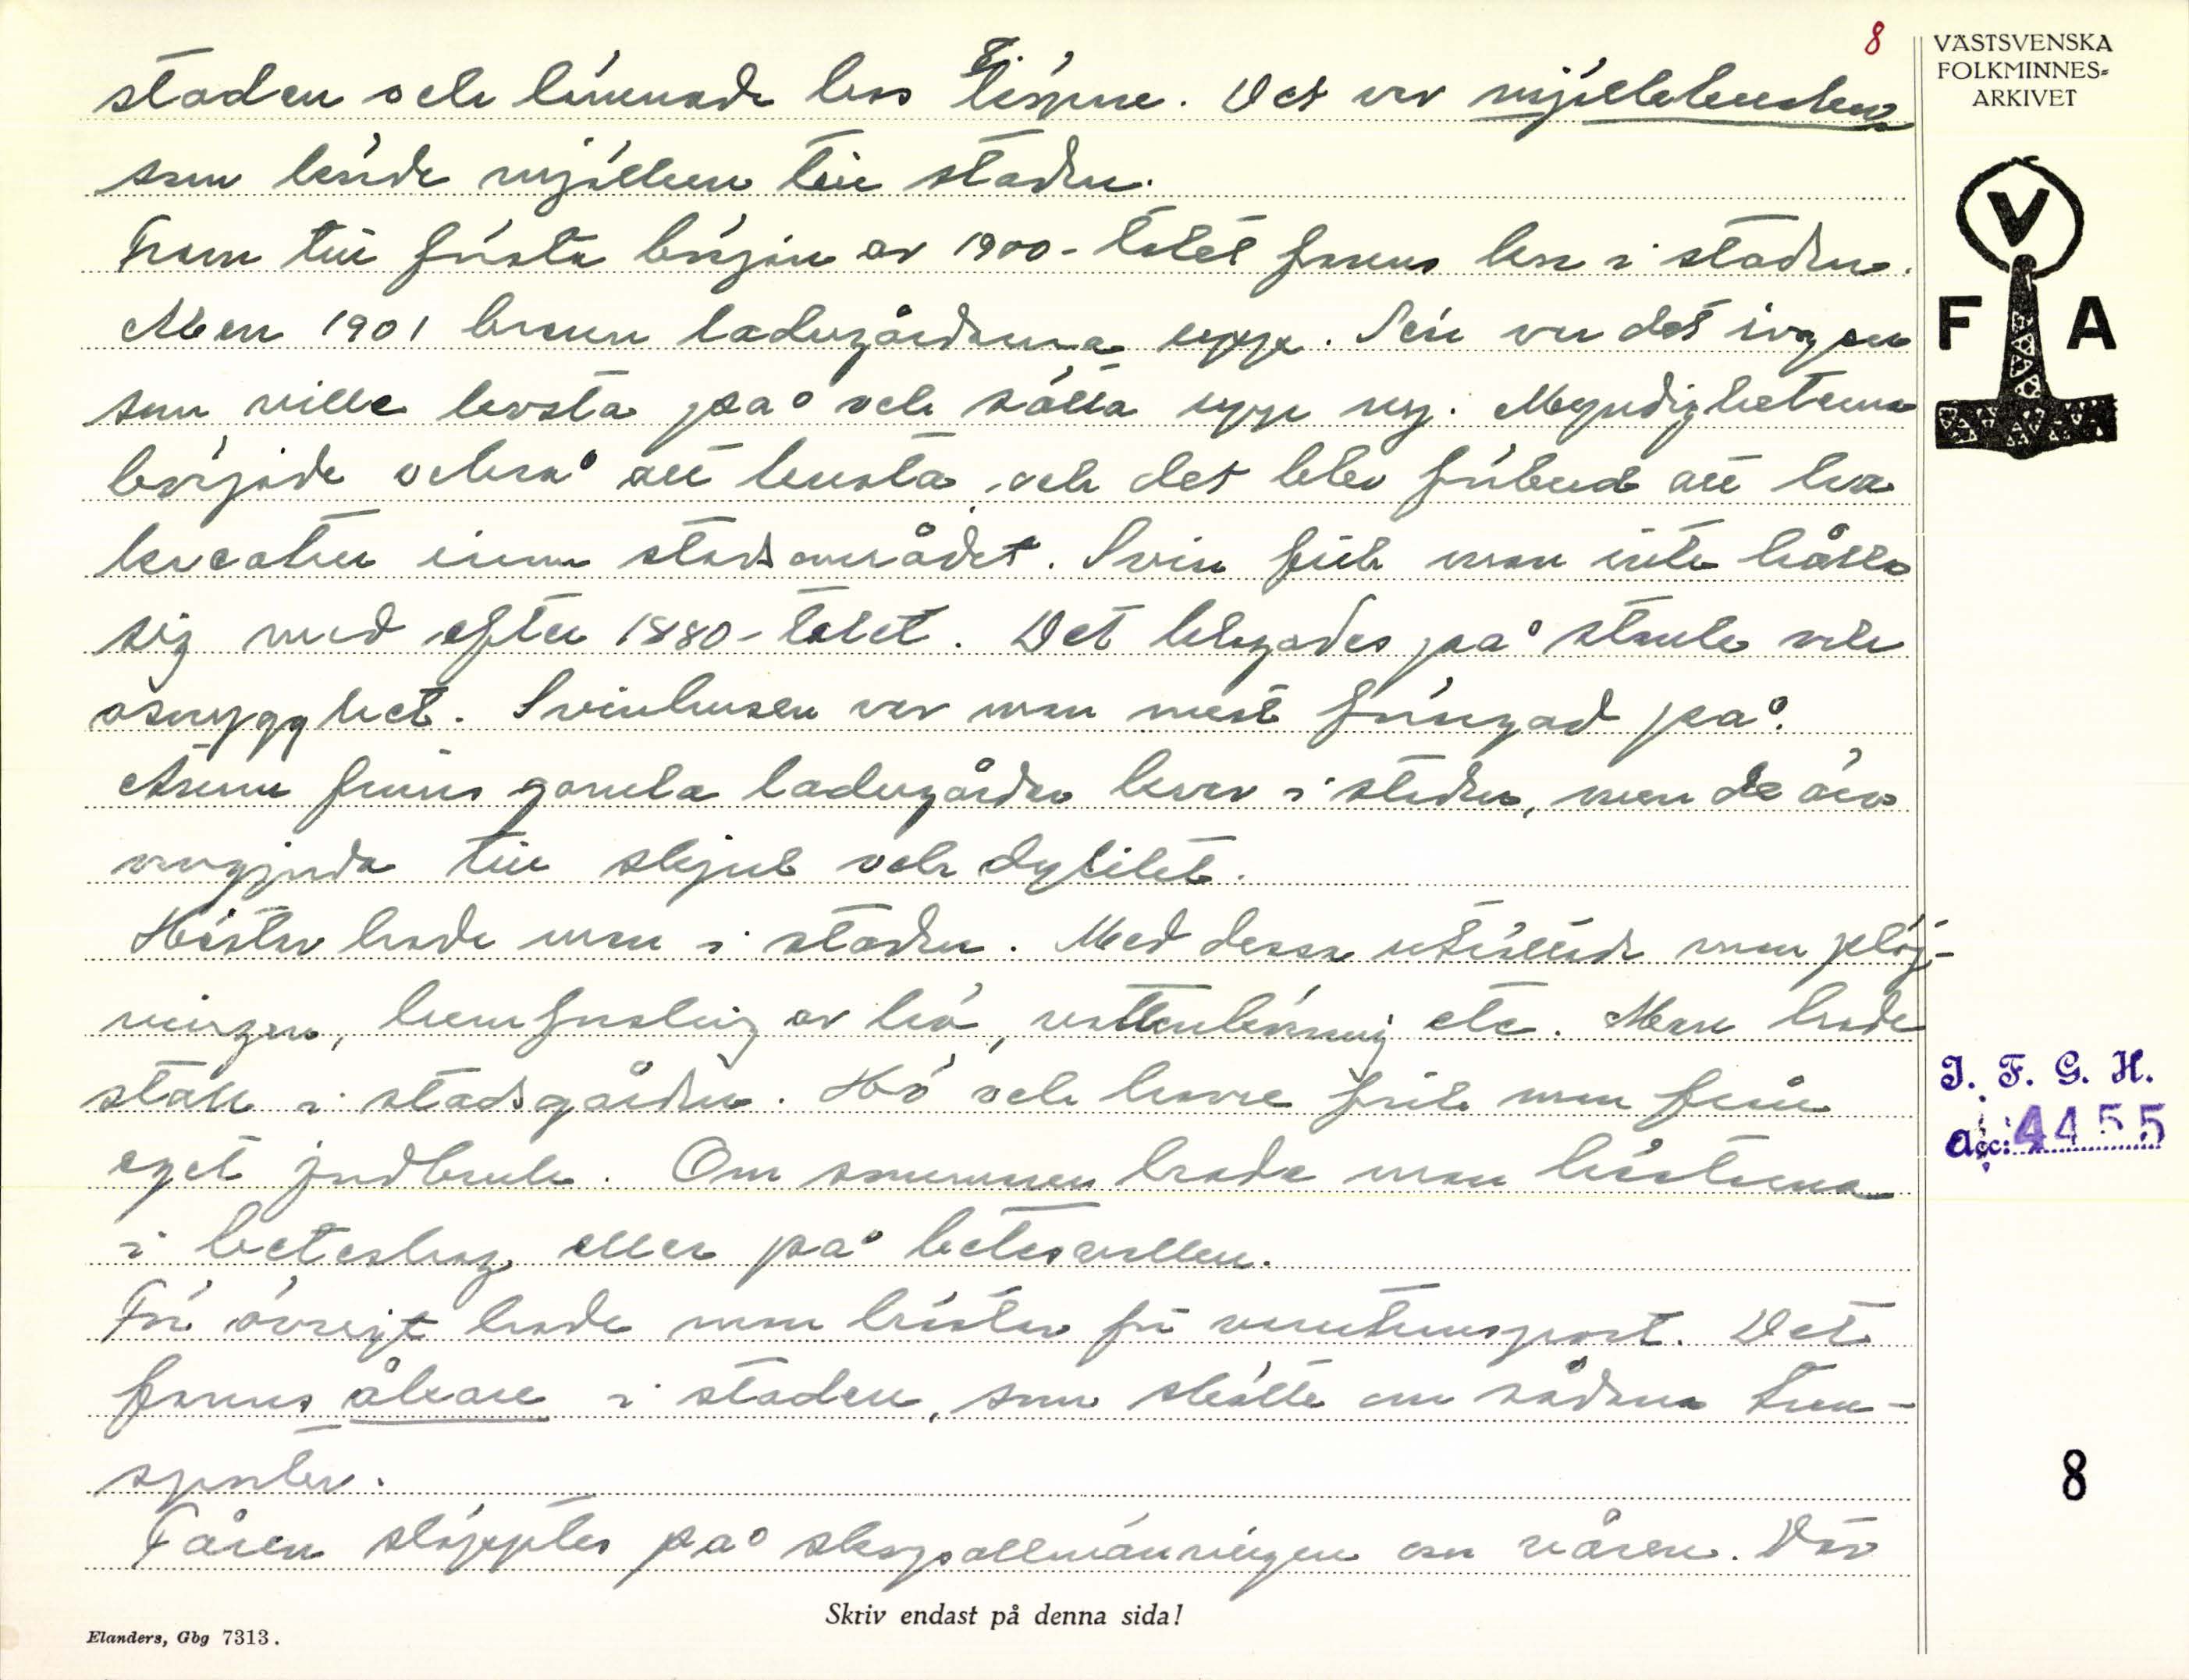 8
VÄSTSVENSKA
FOLKMINNES-
ARKIVET
V
F A
staden och lämnade hos . Det var mjölkkuskar
som körde mjölken till staden.
Fram till första början av 1900-talet fanns kor i staden.
Men 1901 brann ladugårdarna upp. Sen var det ingen
som ville kosta på och sätta upp ny. Myndigheterna
började också att knota, och det blev förbud att ha
kreatur inom stadsområdet. Svin fick man inte hålla
sig med efter 1880-talet. Det klagades på stank och
osnygghet. Svinhusen var man mest förargad på.
Ännu finns gamla ladugårdar kvar i staden, men de äro
omgjorda till skjul och dylikt.
Hästar hade man i staden. Med dessa uträttade man plöj-
ningen, hemforsling av hö, vattenkörning etc. Man hade
stall i stadsgården. Hö och havre fick man från
eget jordbruk. Om sommaren hade man hästarna
i beteshag eller på betesvallen.
För övrigt hade man hästar för varutransport. Det
fanns åkare i staden, som skötte om sådana tran-
sporter.
Fåren släpptes på skogsallmänningen om våren. Där
J. F. G. H.
acc: 4455
8
Skriv endast på denna sida!
Elanders, Gbg 7313.